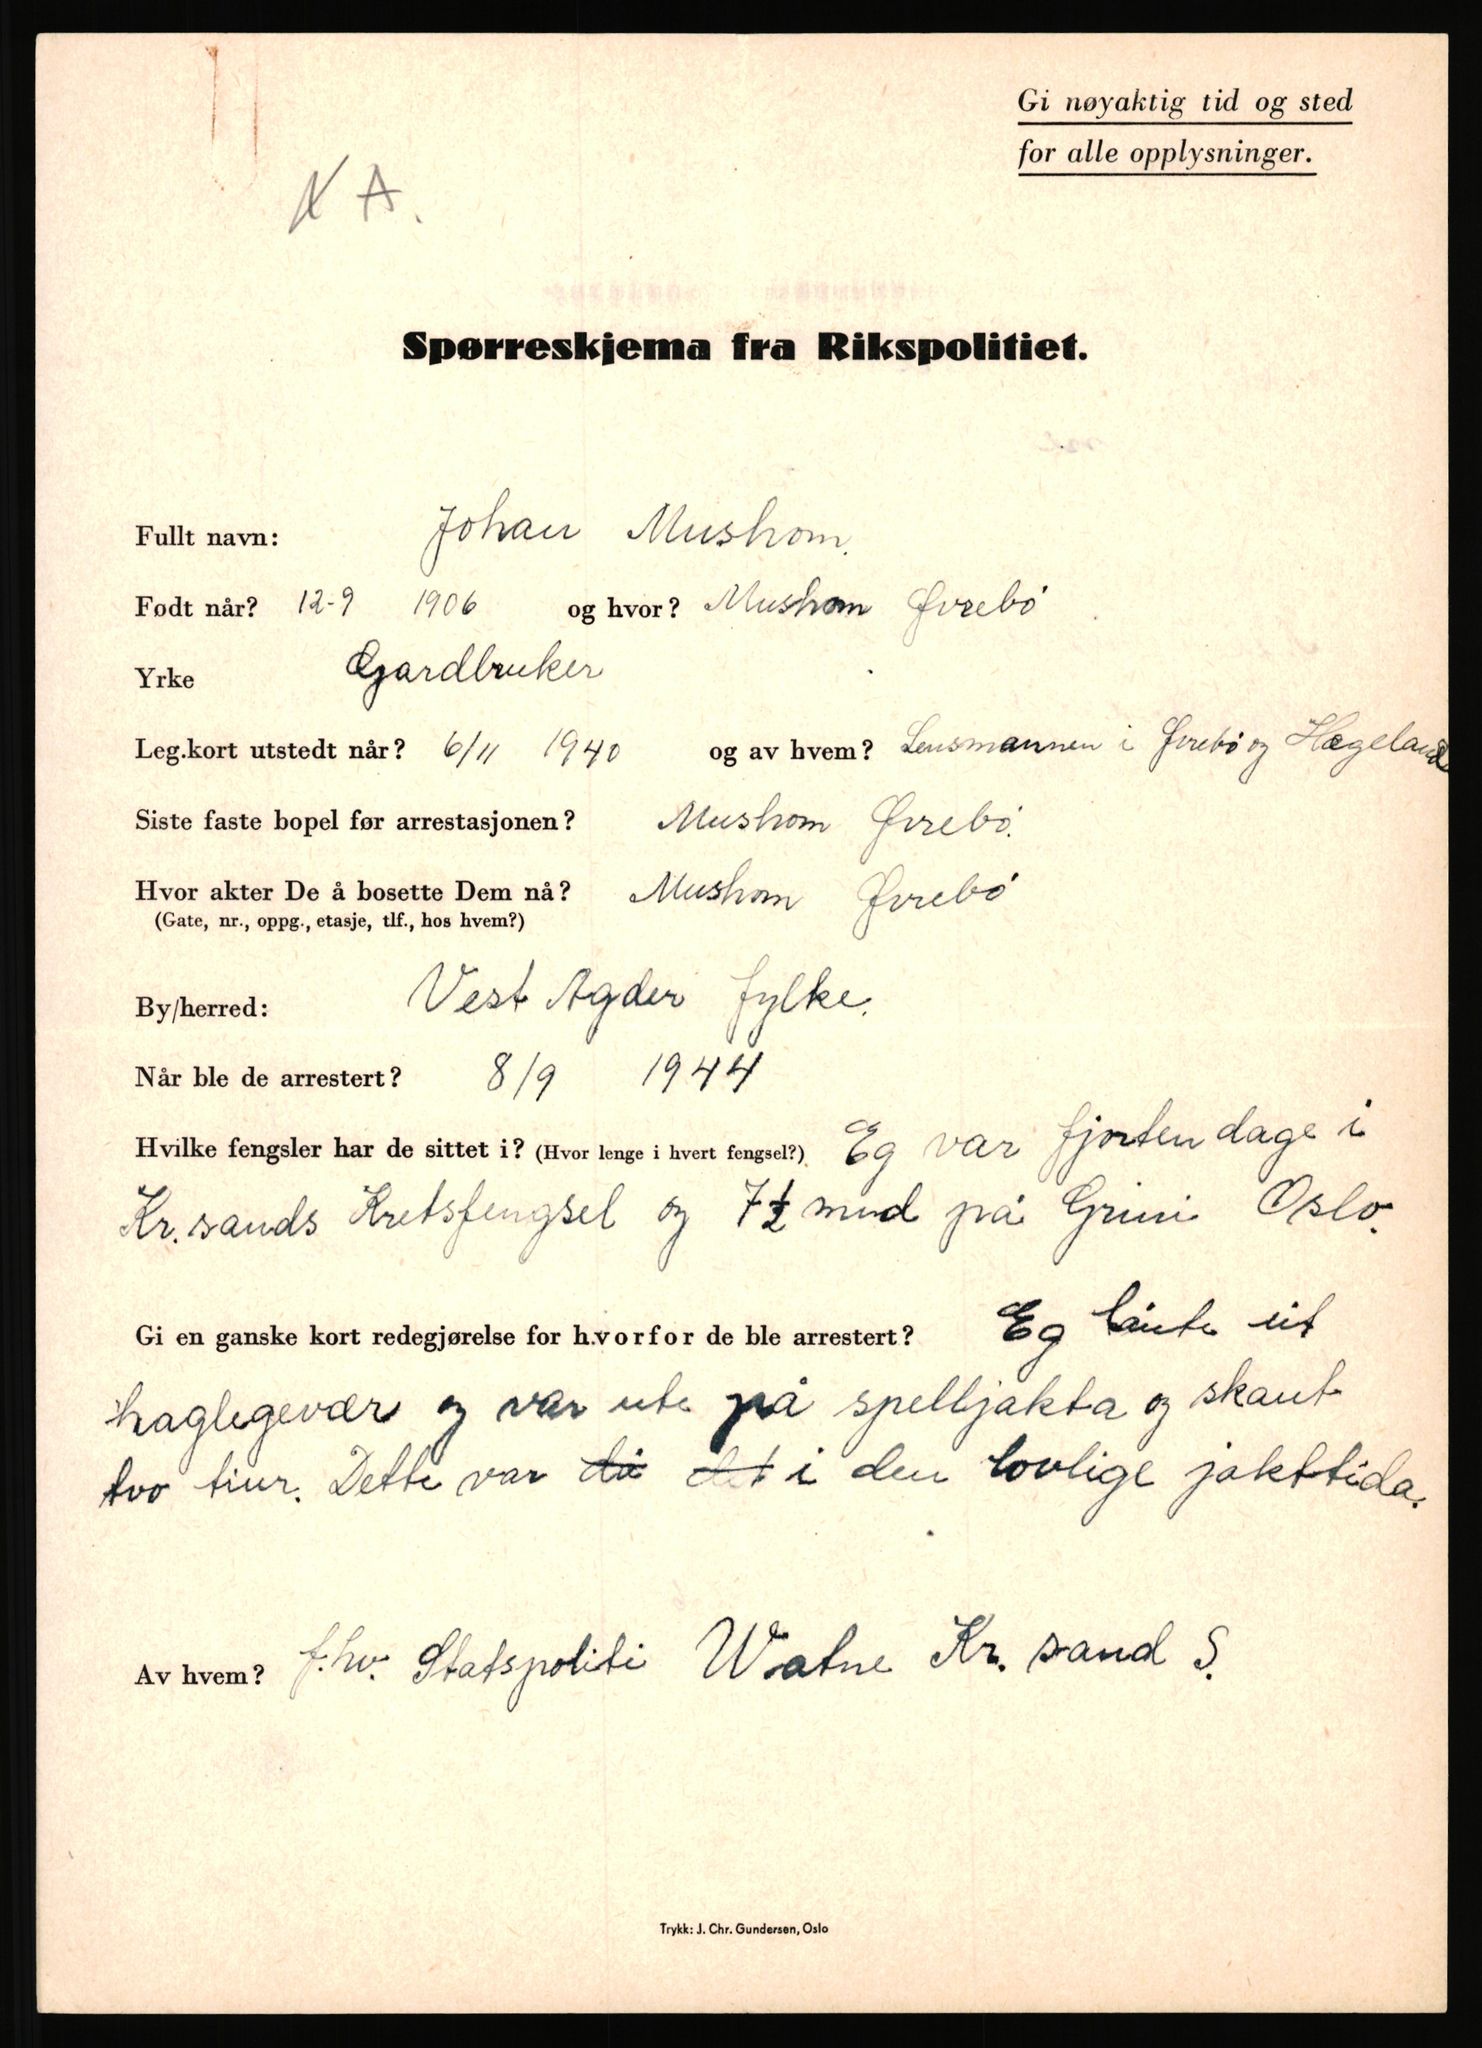 Gi nøyaktig tid og sted
for alle opplysninger.
A.
Spørreskjema fra Rikspolitiet.
Fullt navn: Johan Mushom.
Født når? 12-9 1906 og hvor? Mushom Øvrebö
Yrke Gardbruker
Leg.kort utstedt når? 6/11 1940 og av hvem? Lensmannen i Øvrebö og Hægeland
Siste faste bopel før arrestasjonen? Mushom Øvrebö.
Hvor akter De å bosette Dem nå? Mushom Øvrebö
(Gate, nr., oppg., etasje, tlf., hos hvem?)
By/herred: Vest Agder fylke.
Når ble de arrestert? 8/9 1944
Hvilke fengsler har de sittet i? (Hvor lenge i hvert fengsel?) Eg var fjorten dage i
Kr.sands Kretsfengsel og 7½ mnd på Grini Oslo.
Gi en ganske kort redegjørelse for hvorfor de ble arrestert? Eg lånte ut
haglegevær og var ute på spelljakta og skaut
tvo tiur. Dette var då det i den lovlige jakttida.
Av hvem? f.hv. Statspoliti Watne Kr. sand S.
Trykk: J. Chr. Gundersen, Oslo